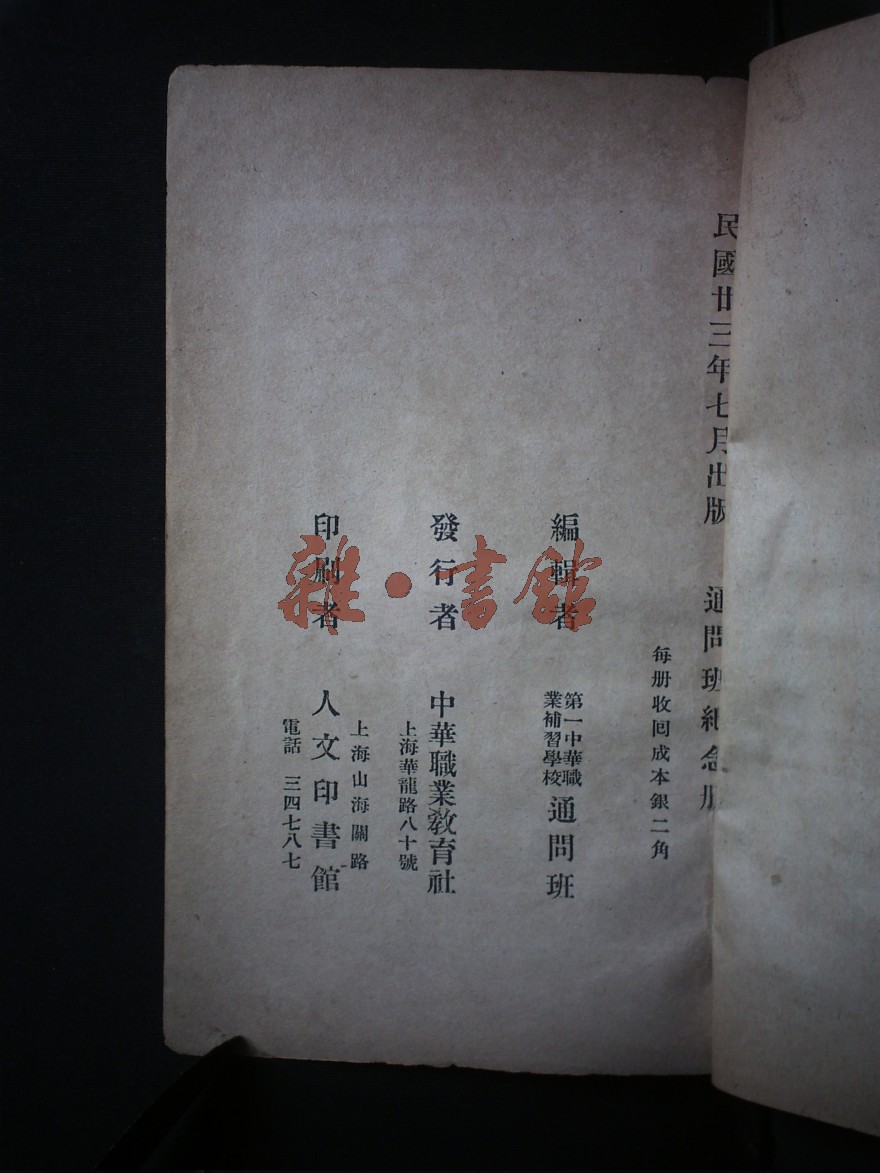 民國廿三年七月出版 通問班紀念册
每册收回成本銀二角
編輯者 第一中華職業補習學校 通問班
發行者 中華職業教育社
上海華龍路八十號
印刷者 人文印書館
上海山海關路
電話 三四七八七
雜·書館